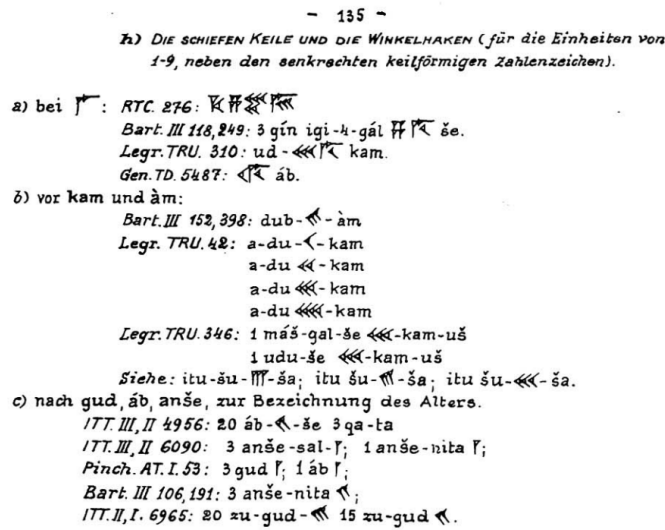 - 135 -
h) DIE SCHIEFEN KEILE UND DIE WINKELHAKEN (für die Einheiten von
1-9, neben den senkrechten keilförmigen Zahlenzeichen).
a) bei : RTC. 276:
Bart. III 118,249: 3 gín igi-4-gál še.
Legr. TRU. 310: ud - kam.
Gen. TD. 5487: áb.
b) vor kam und àm:
Bart. III 152,398: dub- - àm
Legr. TRU. 42: a-du- - kam
a-du - kam
a-du - kam
a-du - kam
Legr. TRU. 346: 1 máš-gal-še -kam-uš
1 udu-še -kam-uš
Siehe: itu-šu- -ša; itu šu- -ša; itu šu- - ša.
c) nach gud, áb, anše, zur Bezeichnung des Alters.
ITT. III, II 4956: 20 áb- -še 3 qa-ta
ITT. III, II 6090: 3 anše-sal- ; 1 anše-nita ;
Pinch. AT. I. 53: 3 gud ; 1 áb ;
Bart. III 106,191: 3 anše-nita ;
ITT. II, I. 6965: 20 zu-gud- 15 zu-gud .